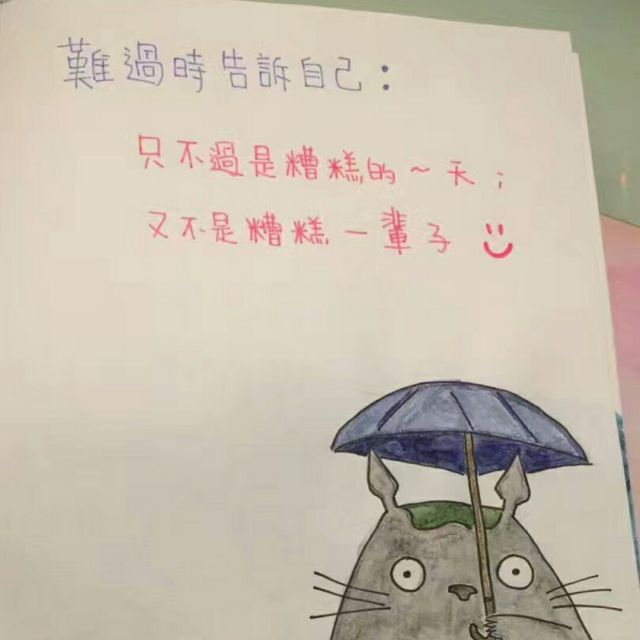 難過時告訴自己:
只不過是糟糕的~天;
又不是糟糕一輩子